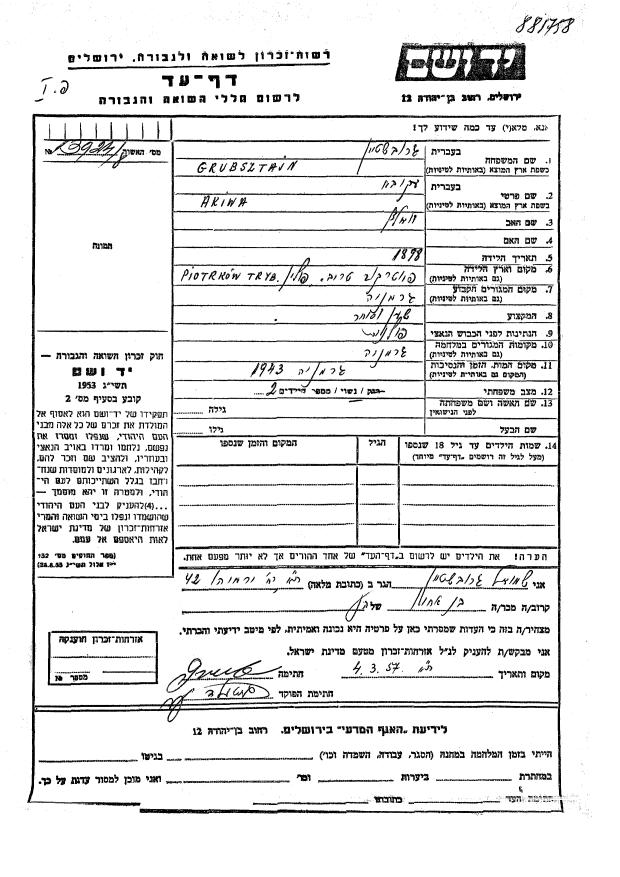 881758
רשות-זכרון לשואה ולגבורה, ירושלים
יד ושם
דף-עד
לרשום חללי השואה והגבורה
ירושלים, רחוב בן-יהודה 12
נא, מלא(י) עד כמה שידוע לך!
מס׳ האשה
№
תמונה
1. שם המשפחה
בעברית
גרובשטיין
בשפת ארץ המוצא (באותיות לטיניות)
GRUBSZTAJN
2. שם פרטי
בעברית
עקיבא
בשפת ארץ המוצא (באותיות לטיניות)
3. שם האב
4. שם האם
5. תאריך הלידה
1898
6. מקום וארץ הלידה
(גם באותיות לטיניות)
PIOTRKÓW TRYB. פולין
7. מקום המגורים הקבוע
(גם באותיות לטיניות)
גרמניה
8. המקצוע
9. הנתינות לפני הכבוש הנאצי
פולנית
10. מקומות המגורים במלחמה
(גם באותיות לטיניות)
גרמניה
11. מקום המות, הזמן והנסיבות
(המקום גם באותיות לטיניות)
גרמניה 1943
12. מצב משפחתי
רווק/ נשוי/ מספר הילדים 2
13. שם האשה ושם משפחתה
לפני הנישואין
גילה
שם הבעל
גילו
14. שמות הילדים עד גיל 18 שנספו
(מעל לגיל זה רושמים ״דף-עד״ מיוחד)
הגיל
המקום והזמן שנספו
חוק זכרון השואה והגבורה —
יד ושם
תשי״ג 1953
קובע בסעיף מס׳ 2
תפקידו של יד-ושם הוא לאסוף אל
המולדת את זכרם של כל אלה מבני
העם היהודי, שנפלו ומסרו את
נפשם, נלחמו ומרדו באויב הנאצי
ובעוזריו, ולהציב שם וזכר להם,
לקהילות, לארגונים ולמוסדות שנח-
רבו בגלל השתייכותם לעם הי-
הודי, ולמטרה זו יהא מוסמך —
...(4)להעניק לבני העם היהודי
שהושמדו ונפלו בימי השואה והמרי
אזרחות-זכרון של מדינת ישראל
לאות היאספם אל עמם.
(ספר החוקים מס׳ 132
י״ז אלול תשי״ג 28.8.53)
הערה! את הילדים יש לרשום ב״דף-העד״ של אחד ההורים אך לא יותר מפעם אחת.
אני שמואל גרובשטיין הגר ב (כתובת מלאה) 42
קרוב/ה מכר/ה של
מצהיר/ה בזה כי העדות שמסרתי כאן על פרטיה היא נכונה ואמיתית, לפי מיטב ידיעתי והכרתי.
אני מבקש/ת להעניק לנ״ל אזרחות-זכרון מטעם מדינת ישראל.
מקום ותאריך ת״א 4.3.57 חתימה
חתימת הפוקד
אזרחות-זכרון הוענקה
מספר №
לידיעת ״האגף המדעי״ בירושלים, רחוב בן-יהודה 12
הייתי בזמן המלחמה במחנה (הסגר, עבודה, השמדה וכו׳) בגיטו
במחתרת ביערות וכו׳ ואני מוכן למסור עדות על כך.
חתימת העד כתובתו